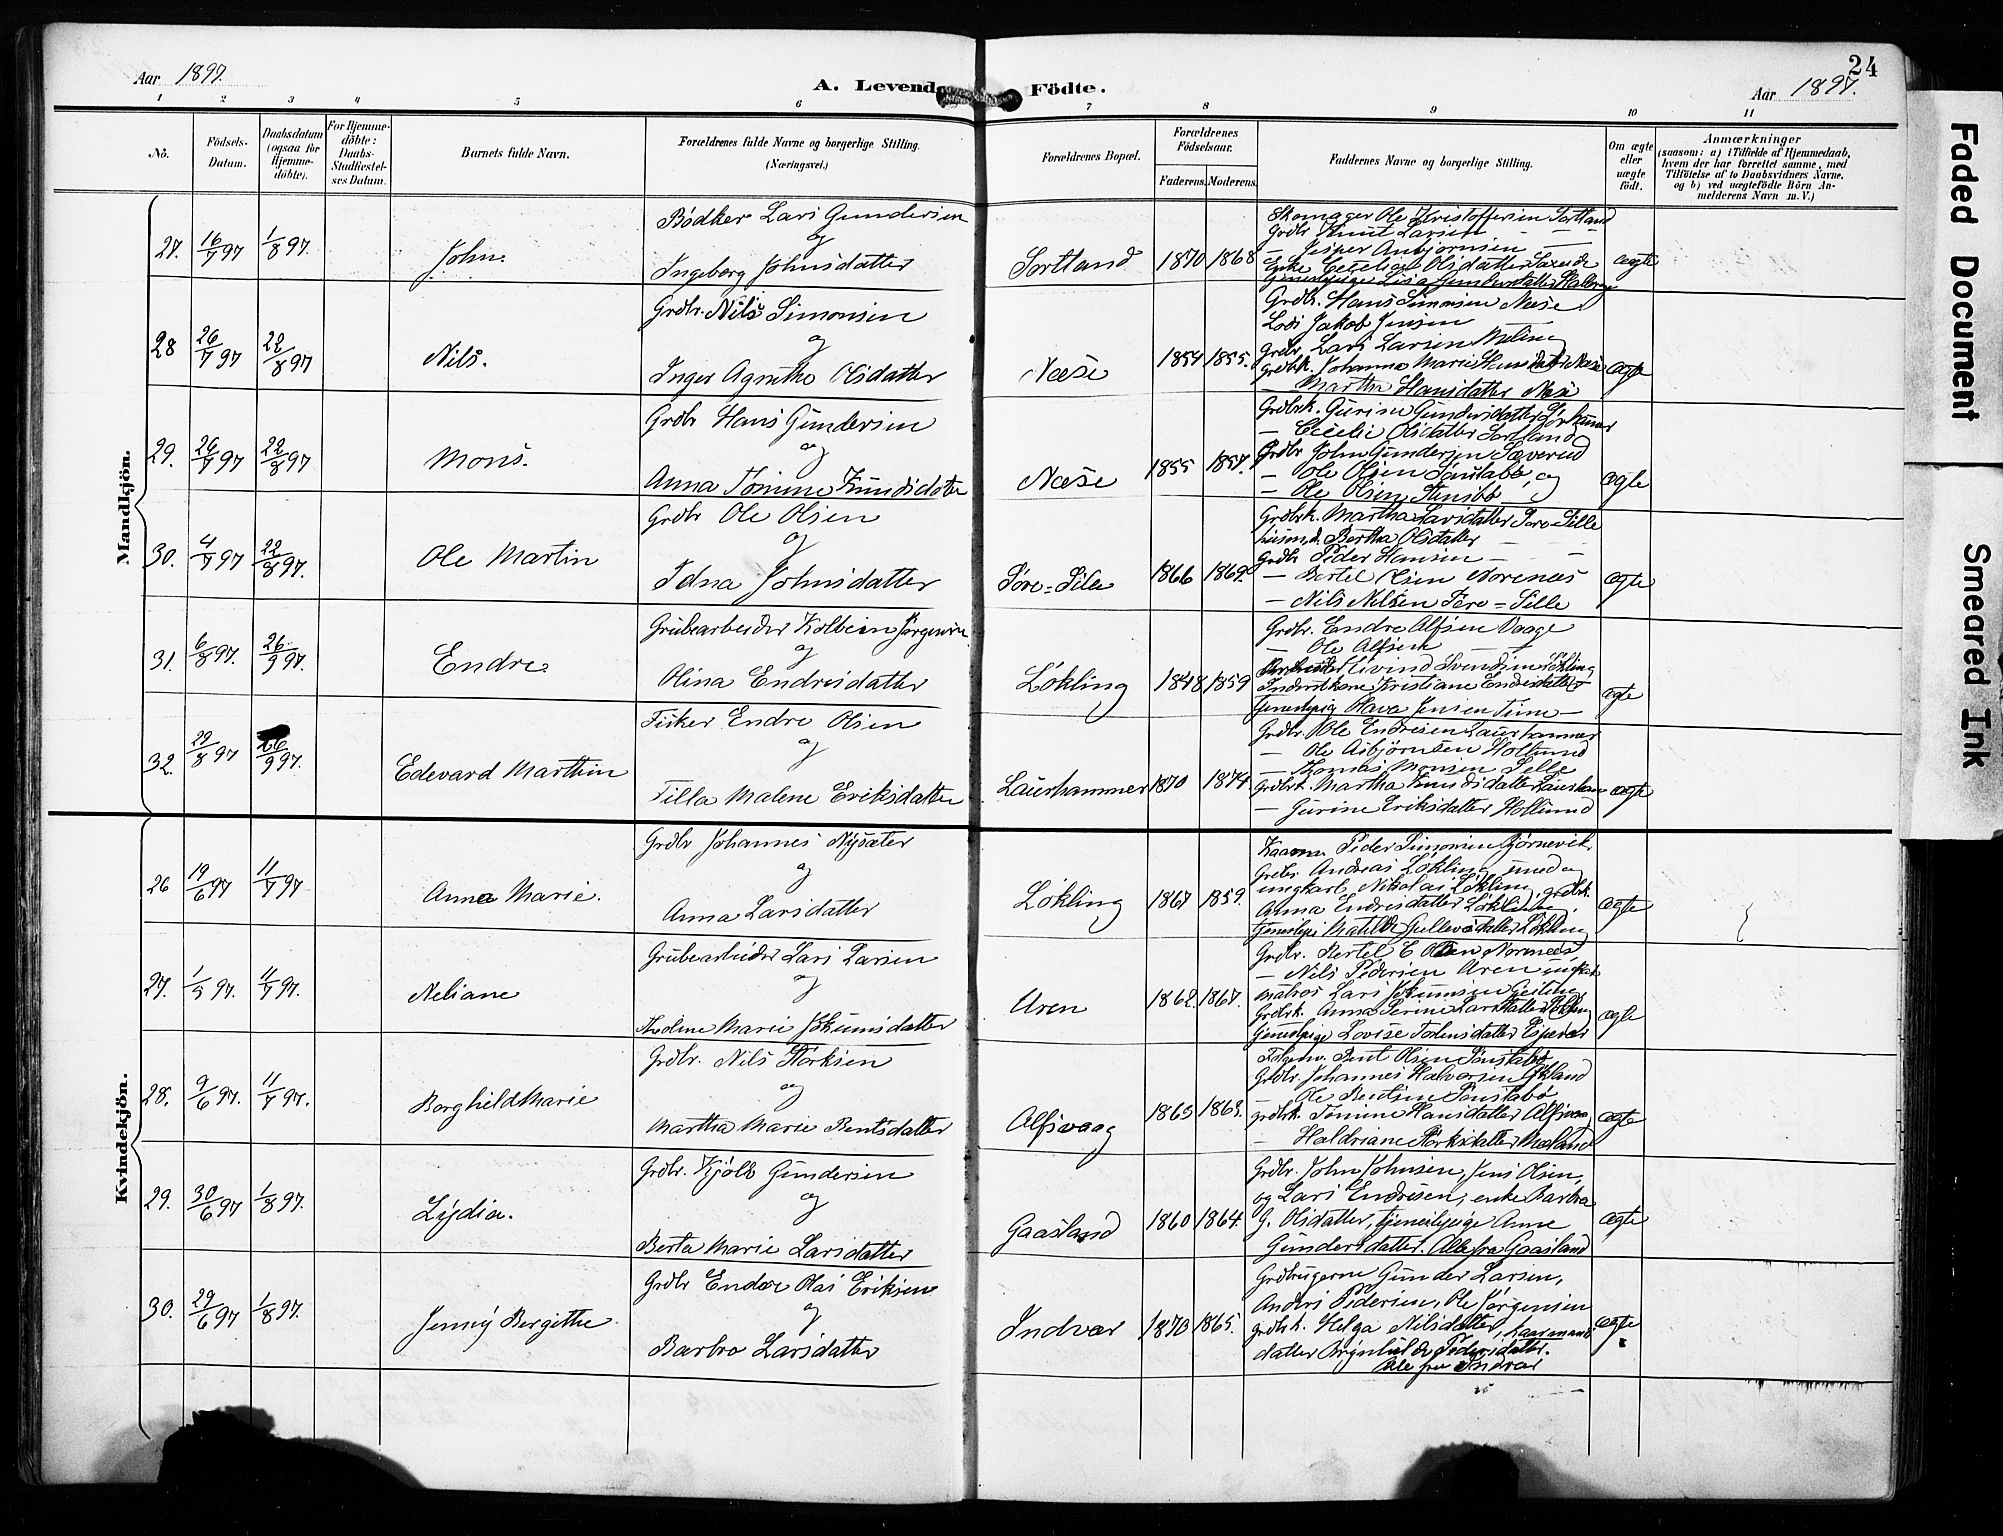 24
Aar 1897.
A. Levende Födte.
Aar 1897.
1 2 3 4 5 6 7 8 9 10 11
No.
Födsels-Datum.
Daabsdatum (ogsaa for Hjemme-döbte).
For Hjemme-döbte: Daabs-Stadfæstel-ses Datum.
Barnets fulde Navn.
Forældrenes fulde Navne og borgerlige Stilling.
(Næringsvei.)
Forældrenes Bopæl.
Forældrenes Födselsaar.
Faderens. Moderens.
Faddernes Navne og borgerlige Stilling.
Om ægte eller uægte født.
Anmærkninger
(saasom: a) i Tilfælde af Hjemmedaab,
hvem der har forrettet samme, med
Tilföielse af to Daabsvidners Navne,
og b) ved uægtefödte Börn An-
melderens Navn m. V.)
Mandkjön.
27. 16/7 97 1/8 97. John.
Bödker Lars Gundersen
og
Ingeborg Johnsdatter
Sortland 1870 1868
Skomager Ole Kristoffersen Sortland
Grdbr Knut Larsen — —
— Jesper Anbjørnsen —
Enke Cecelia Olsdatter
ægte
28 26/7 97 22/8 97 Nils.
Grdbr. Nils Simonsen
og
Inger Agnethe Olsdatter
Næse 1854 1855.
Grdbr. Hans Simonsen Næse
Lods Jakob Jensen —
Grdbr Lars Larsen Meling
Grdbrk. Johanna Marie Hansdatter Næse
— Martha Hansdatter Næse
ægte
29. 26/7 97 22/8 97 Mons.
Grdbr Hans Gundersen
og
Anna Tomine Knudsdatter
Næse 1855 1857.
Grdbrk. Gurine Gundersdatter
— Cecelie Olsdatter Sortland
Grdbr John Gundersen Sæverud
— Ole Olsen Sønstabø, og
— Ole Olsen Stensbø
ægte
30. 4/7 97 22/8 97. Ole Martin
Grdbr Ole Olsen
og
Edna Johnsdatter
Søre-Sille 1866 1869.
Grdbrk. Martha Larsdatter Søre-Sille
Bertha Olsdatter — —
Grdbr Peder Hansen — —
— Bertel Olsen Norenæs
— Nils Nilsen Søre-Sille
ægte
31. 6/8 97. 26/9 97. Endre.
Grubearbeider Kolbein Jørgensen
og
Olina Endresdatter
Løkling 1848 1859
Grdbr. Endre Alfsen Vaage
— Ole Alfsen —
Eivind Svendsen Løkling
Kristiane Endresdatter
Tjenestepig Hava Jensen Time —
ægte
32. 22/8 97 26/9 97. Edevard Marthin
Fisker Endre Olsen
og
Tilla Malene Eriksdatter
Lauerhammer 1870 1874.
Grdbr. Ole Endresen Lauerhammer
— Ole Asbjørnsen Hollund
— Thomas Monsen Selle
Grdbrk. Martha Knudsdatter Lauerham
— Gurine Eriksdatter Hollund
ægte
Kvindekjön.
26 19/6 97 11/7 97 Anna Marie.
Grdbr Johannes Nysæter
og
Anna Larsdatter
Løkling 1867 1859.
Kaarm. Peder Simonsen Bjørnevik.
Grdbr. Andreas Løkling, smed og
ungkarl Nikolai Løkling, grdbrk.
Anna Endresdatter Løkling,
Tjenestepi. Matilde Gullevsdatter Løkling
ægte
27. 1/5 97. 4/7 97. Neliane
Grubearbeider Lars Larsen
og
Tholine Marie Jokumsdatter
Aren 1862. 1867.
Grdbr. Bertel E Olsen Norenæs,
— Nils Pedersen Aren
Matros Lars Jokumsen Geitung,
Grdbrk. Anna Serine Larsdatter Løkling
Tjenestepige Lovise Torkelsdatter Espevær
ægte
28. 9/6 97. 11/7 97. Borghild Marie
Grdbr. Nils Størksen
og
Martha Marie Bentsdatter
Alfsvaag 1865 1863.
Bent Olsen Sønstabø
Grdbr. Johannes Halvorsen Økland
— Ole Bentsen Sønstabø
grdbrk. Tomine Hansdatter Alfsvaag
— Haldriane Størksdatter Mæland
ægte
29. 30/6 97 1/8 97. Lydia.
Grdbr. Kjøls Gundersen
og
Berta Marie Larsdatter
Gaasland 1860 1864.
Grdbr. John Johnsen, Jens Olsen,
og Lars Endresen, enke Barbra
G. Olsdatter, tjenestepige Anne
Gundersdatter. Alle fra Gaasland
ægte
30. 29/6 97 1/8 97. Jenny Bergithe
Grdbr Endre Olai Eriksen
og
Barbro Larsdatter
Indvær 1870 1865.
Grdbrugerne Gunder Larsen,
Anders Pedersen, Ole Jørgensen
grdbrk. Helga Nilsdatter, kaarmands
datter Brynhilde Pedersdatter.
Alle fra Indvær
ægte
Faded Document
Smeared Ink